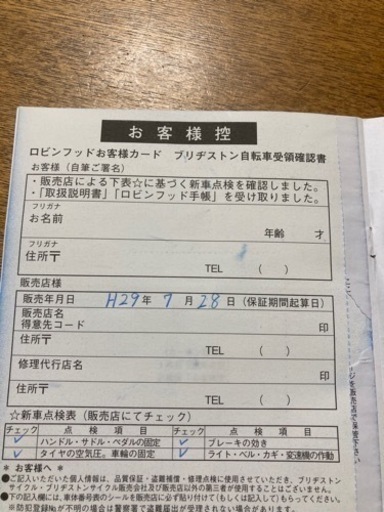 お客様控
ロビンフッドお客様カード ブリヂストン自転車受領確認書
お客様（自筆ご署名）
・販売店による下表☆に基づく新車点検を確認しました。
・「取扱説明書」「ロビンフッド手帳」を受け取りました。
フリガナ
お名前
年齢 才
フリガナ
住所〒
TEL （ ）
販売店様
販売年月日 H29年 7月 28日（保証期間起算日）
販売店名
得意先コード 印
住所〒
TEL （ ）
修理代行店名 印
住所〒
TEL （ ）
☆新車点検表（販売店にてチェック）
チェック 点検項目 チェック 点検項目
✓ ハンドル・サドル・ペダルの固定 ✓ ブレーキの効き
✓ タイヤの空気圧、車輪の固定 ✓ ライト・ベル・カギ・変速機の作動
＊ お客様へ ＊
●ご記入いただいた個人情報は、品質保証・盗難補償・修理点検に使用させていただき、ブリヂストン
サイクル・ブリヂストンサイクル販売会社及び販売店以外の第三者が使用することはございません。
●下の記入欄には、車体番号表のシールを販売店に必ず貼り付けて（もしくは記入して）もらってください。
※防犯登録№が不明の場合は警察署で盗難届出が受理されない場合